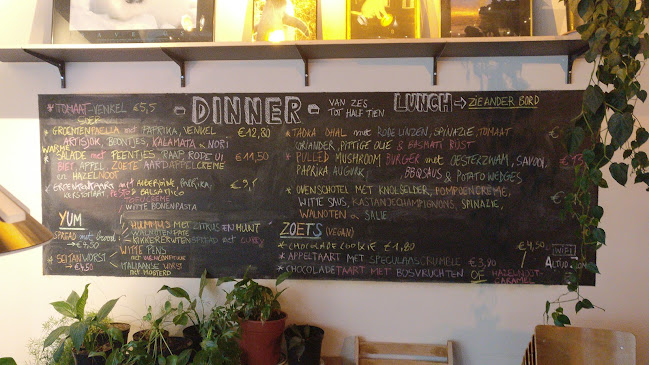 DINNER - VAN ZES TOT HALF TIEN
LUNCH → ZIE ANDER BORD
* TOMAAT-VENKEL SOEP €5,5
* GROENTENPAELLA met PAPRIKA, VENKEL €12,80
ARTISJOK, BOONTJES, KALAMATA & NORI
* WARME SALADE met PEENTJES, RAAP, RODE UI, €11,50
BIET, APPEL, ZOETE AARDAPPELCREME
en HAZELNOOT
KERSTOMAAT, PESTO & BALSAMICO
WITTE BONENPASTA
YUM
SPREAD met brood
→ €4,50
* SEITANWORST
→ €4,50
HUMMUS MET CITRUS EN MUNT
WALNOTENPATE
KIKKERERWTENSPREAD met curry
WITTE PENS
ITALIAANSE WORST
met MOSTERD
* TADKA DHAL met RODE LINZEN, SPINAZIE, TOMAAT
KORIANDER, PITTIGE OLIE & BASMATI RIJST
* PULLED MUSHROOM BURGER met OESTERZWAM, SAVOOI,
PAPRIKA, AUGURK, BBQSAUS & POTATO WEDGES
* OVENSCHOTEL MET KNOLSELDER, POMPOENCREME,
WITTE SAUS, KASTANJECHAMPIGNONS, SPINAZIE,
WALNOTEN en SALIE
ZOETS (VEGAN)
* CHOCOLADE COOKIE €1,80
* APPELTAART MET SPECULAASCRUMBLE €3,90
* CHOCOLADETAART MET BOSVRUCHTEN OF HAZELNOOT-CARAMEL
€4,50
WIFI